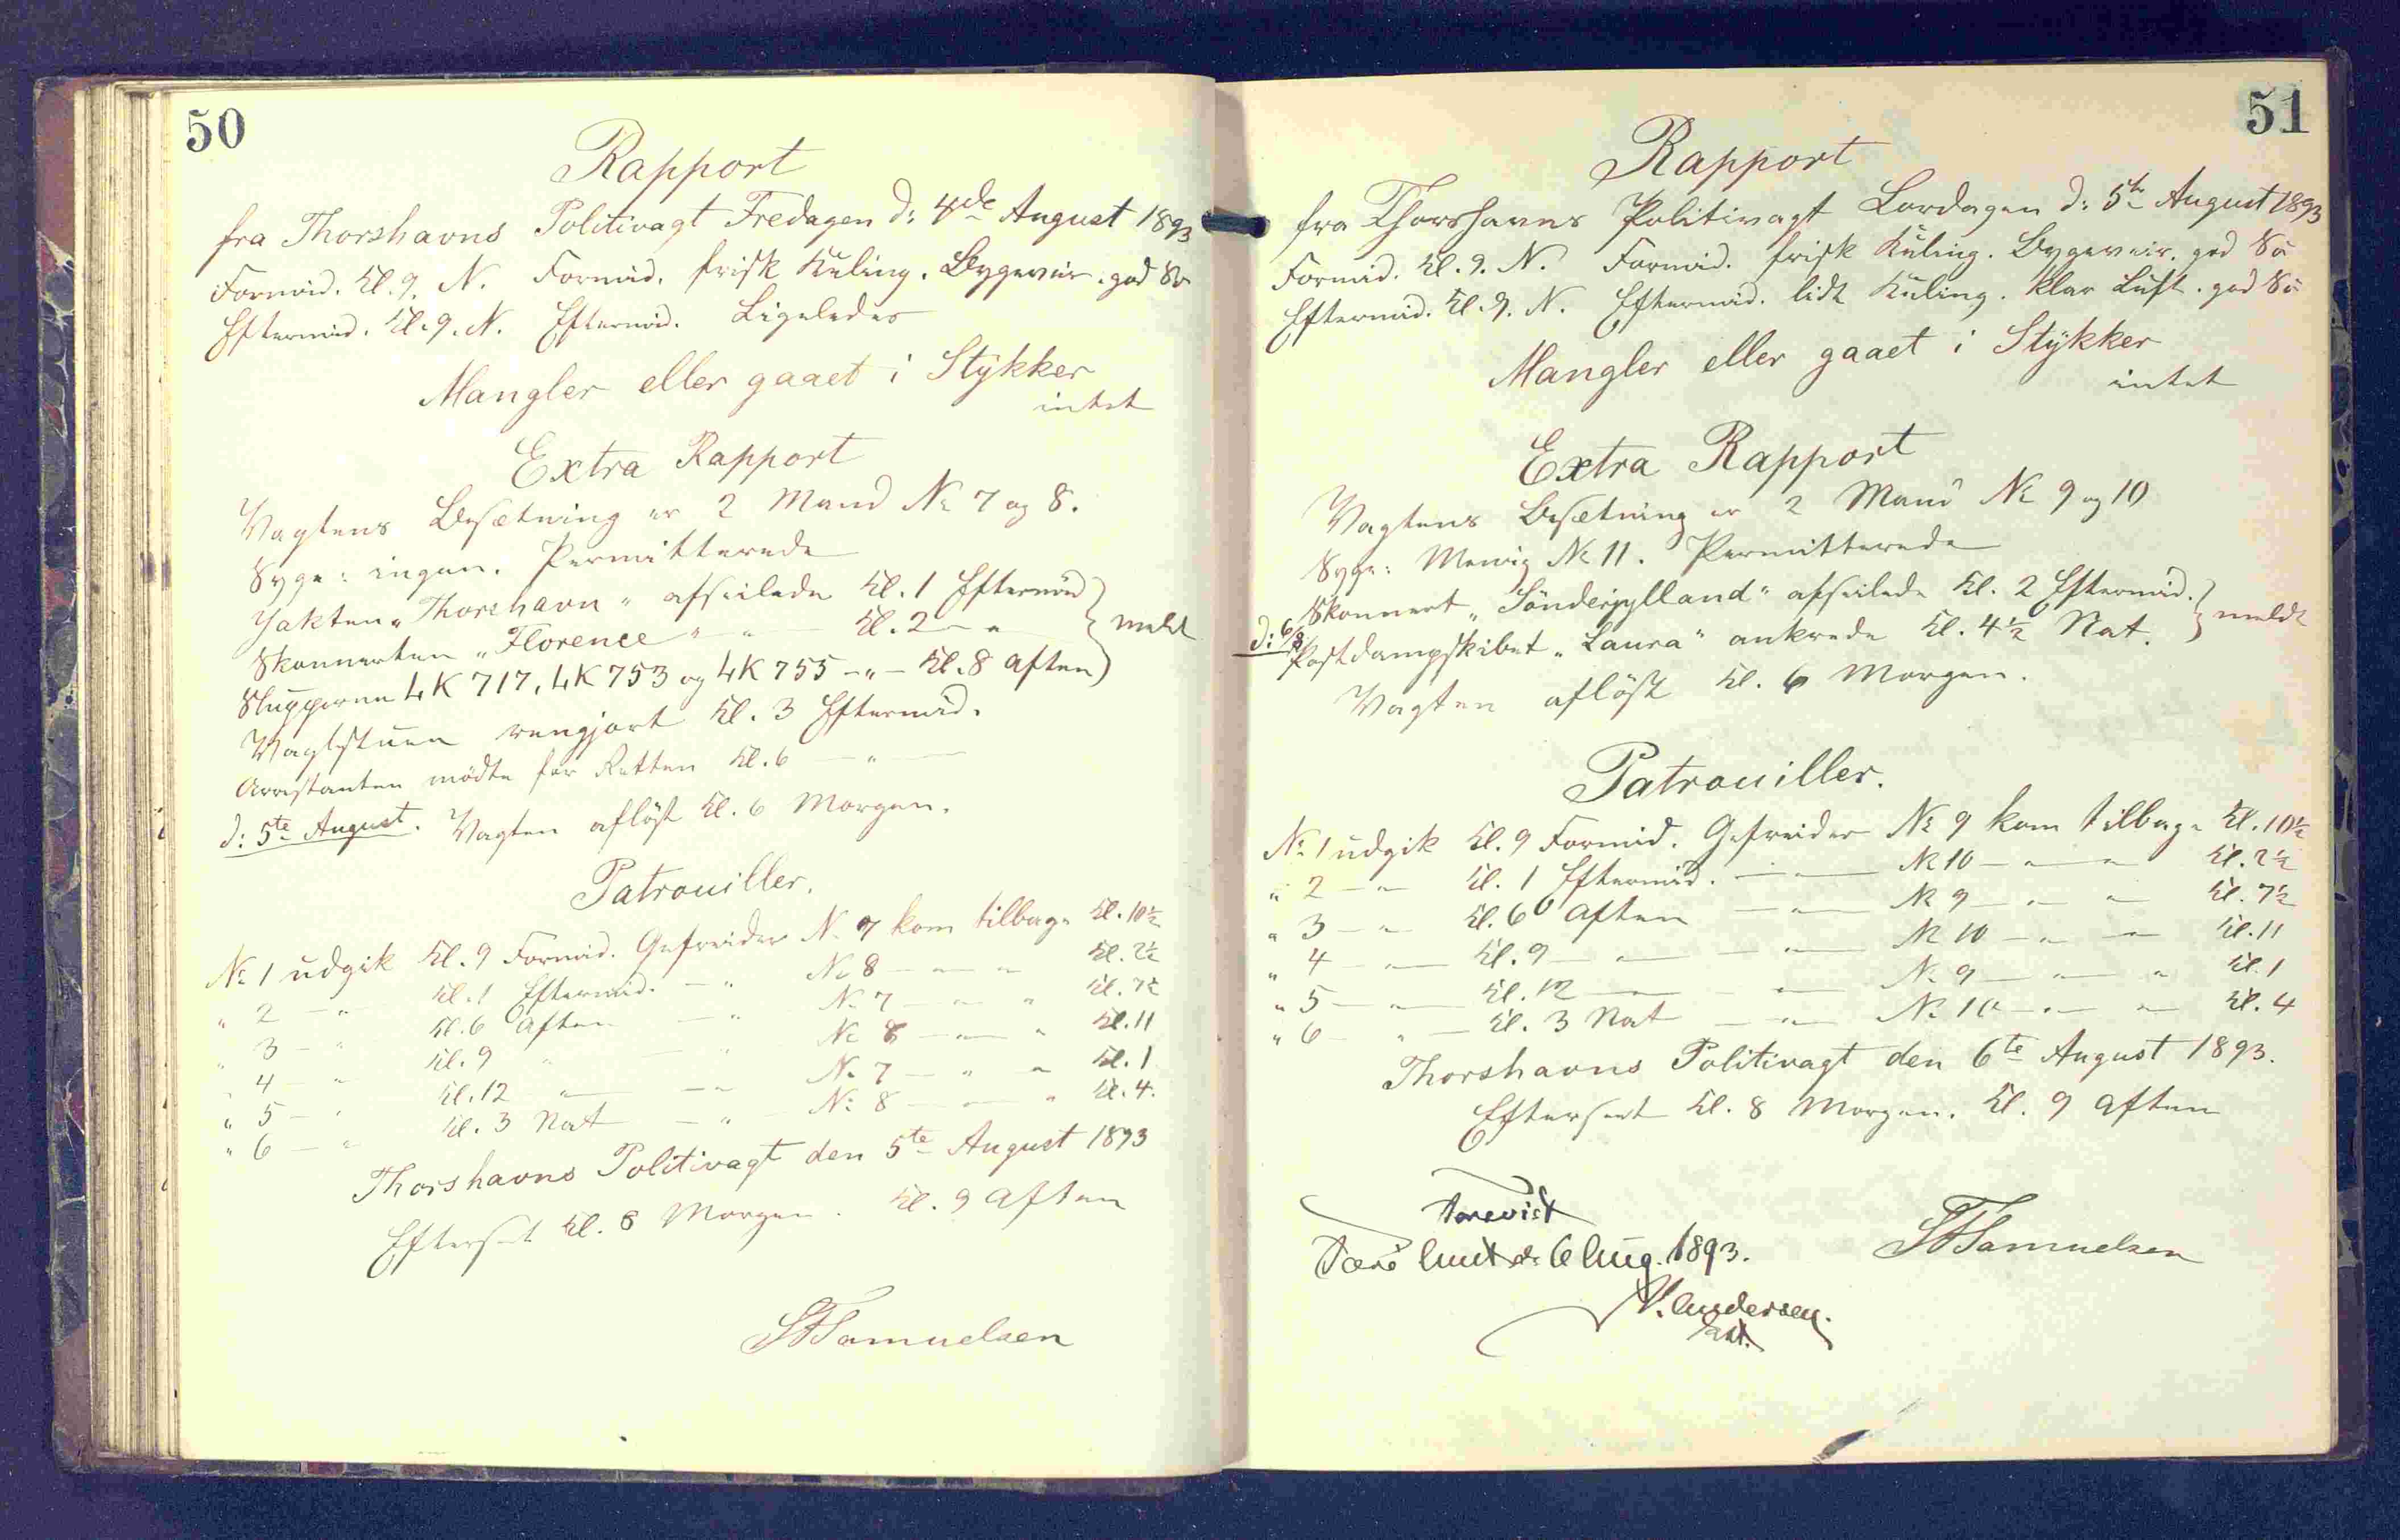 50
Rapport
fra Thorshavns Politivagt Fredagen d: 4de August 1893
Formid. Kl. 9. N. Formid. frisk Kuling. Bygeveir. god Sö
Eftermid. Kl. 9. N. Eftermid. Ligeledes
Mangler eller gaaet i Stykker
intet
Extra Rapport
Vagtens Besætning er 2 Mand No 7 og 8.
Syge: ingen. Permitterede —
Jakten „Thorshavn" afseilede Kl. 1 Eftermid
Skonnerten „Florence" — " — Kl. 2 — " — } meldt
Slupperne LK 717, LK 753 og LK 755 — " — Kl. 8 Aften
Vagtstuen rengjort Kl. 3 Eftermid.
Arrestanten mödte for Retten Kl. 6 — " —
d: 5te August. Vagten aflöst Kl. 6 Morgen.
Patrouiller.
No 1 udgik Kl. 9 Formid. Gefreider No 7 kom tilbage Kl. 10½
" 2 — " Kl. 1 Eftermid. — " No 8 — " — " Kl. 2½
" 3 — " Kl. 6 Aften — " No 7 — " — " Kl. 7½
" 4 — " Kl. 9 " — " No 8 — " — " Kl. 11
" 5 — " Kl. 12 " — " No 7 — " — " Kl. 1
" 6 — " Kl. 3 Nat — " No 8 — " — " Kl. 4.
Thorshavns Politivagt den 5te August 1893
Efterseet Kl. 8 Morgen. Kl. 9 Aften
Samuelsen
51
Rapport
fra Thorshavns Politivagt Lördagen d: 5te August 1893
Formid. Kl. 9. N. Formid. frisk Kuling. Bygeveir. god Sö
Eftermid. Kl. 9. N. Eftermid. lidt Kuling. klar Luft. god Sö
Mangler eller gaaet i Stykker
intet
Extra Rapport
Vagtens Besætning er 2 Mand No 9 og 10
Syge: Menig No 11. Permitterede —
Skonnert „Sönderjylland" afseilede Kl. 2 Eftermid.
d: 6/8 Postdampskibet „Laura" ankrede Kl. 4½ Nat. } meldt
Vagten aflöst Kl. 6 Morgen.
Patrouiller.
No 1 udgik Kl. 9 Formid. Gefreider No 9 kom tilbage Kl. 10½
" 2 — " — Kl. 1 Eftermid. — " — No 10 — " — " Kl. 2½
" 3 — " — Kl. 6 Aften — " — No 9 — " — " Kl. 7½
" 4 — " — Kl. 9 — " — — " — No 10 — " — " Kl. 11
" 5 — " — Kl. 12 — " — — " — No 9 — " — " Kl. 1
" 6 — " — Kl. 3 Nat — " — No 10 — " — " Kl. 4
Thorshavns Politivagt den 6te August 1893.
Efterseet Kl. 8 Morgen. Kl. 9 Aften
Forevist
Færö Amt d. 6 Aug. 1893.
Samuelsen
V. Andersen.